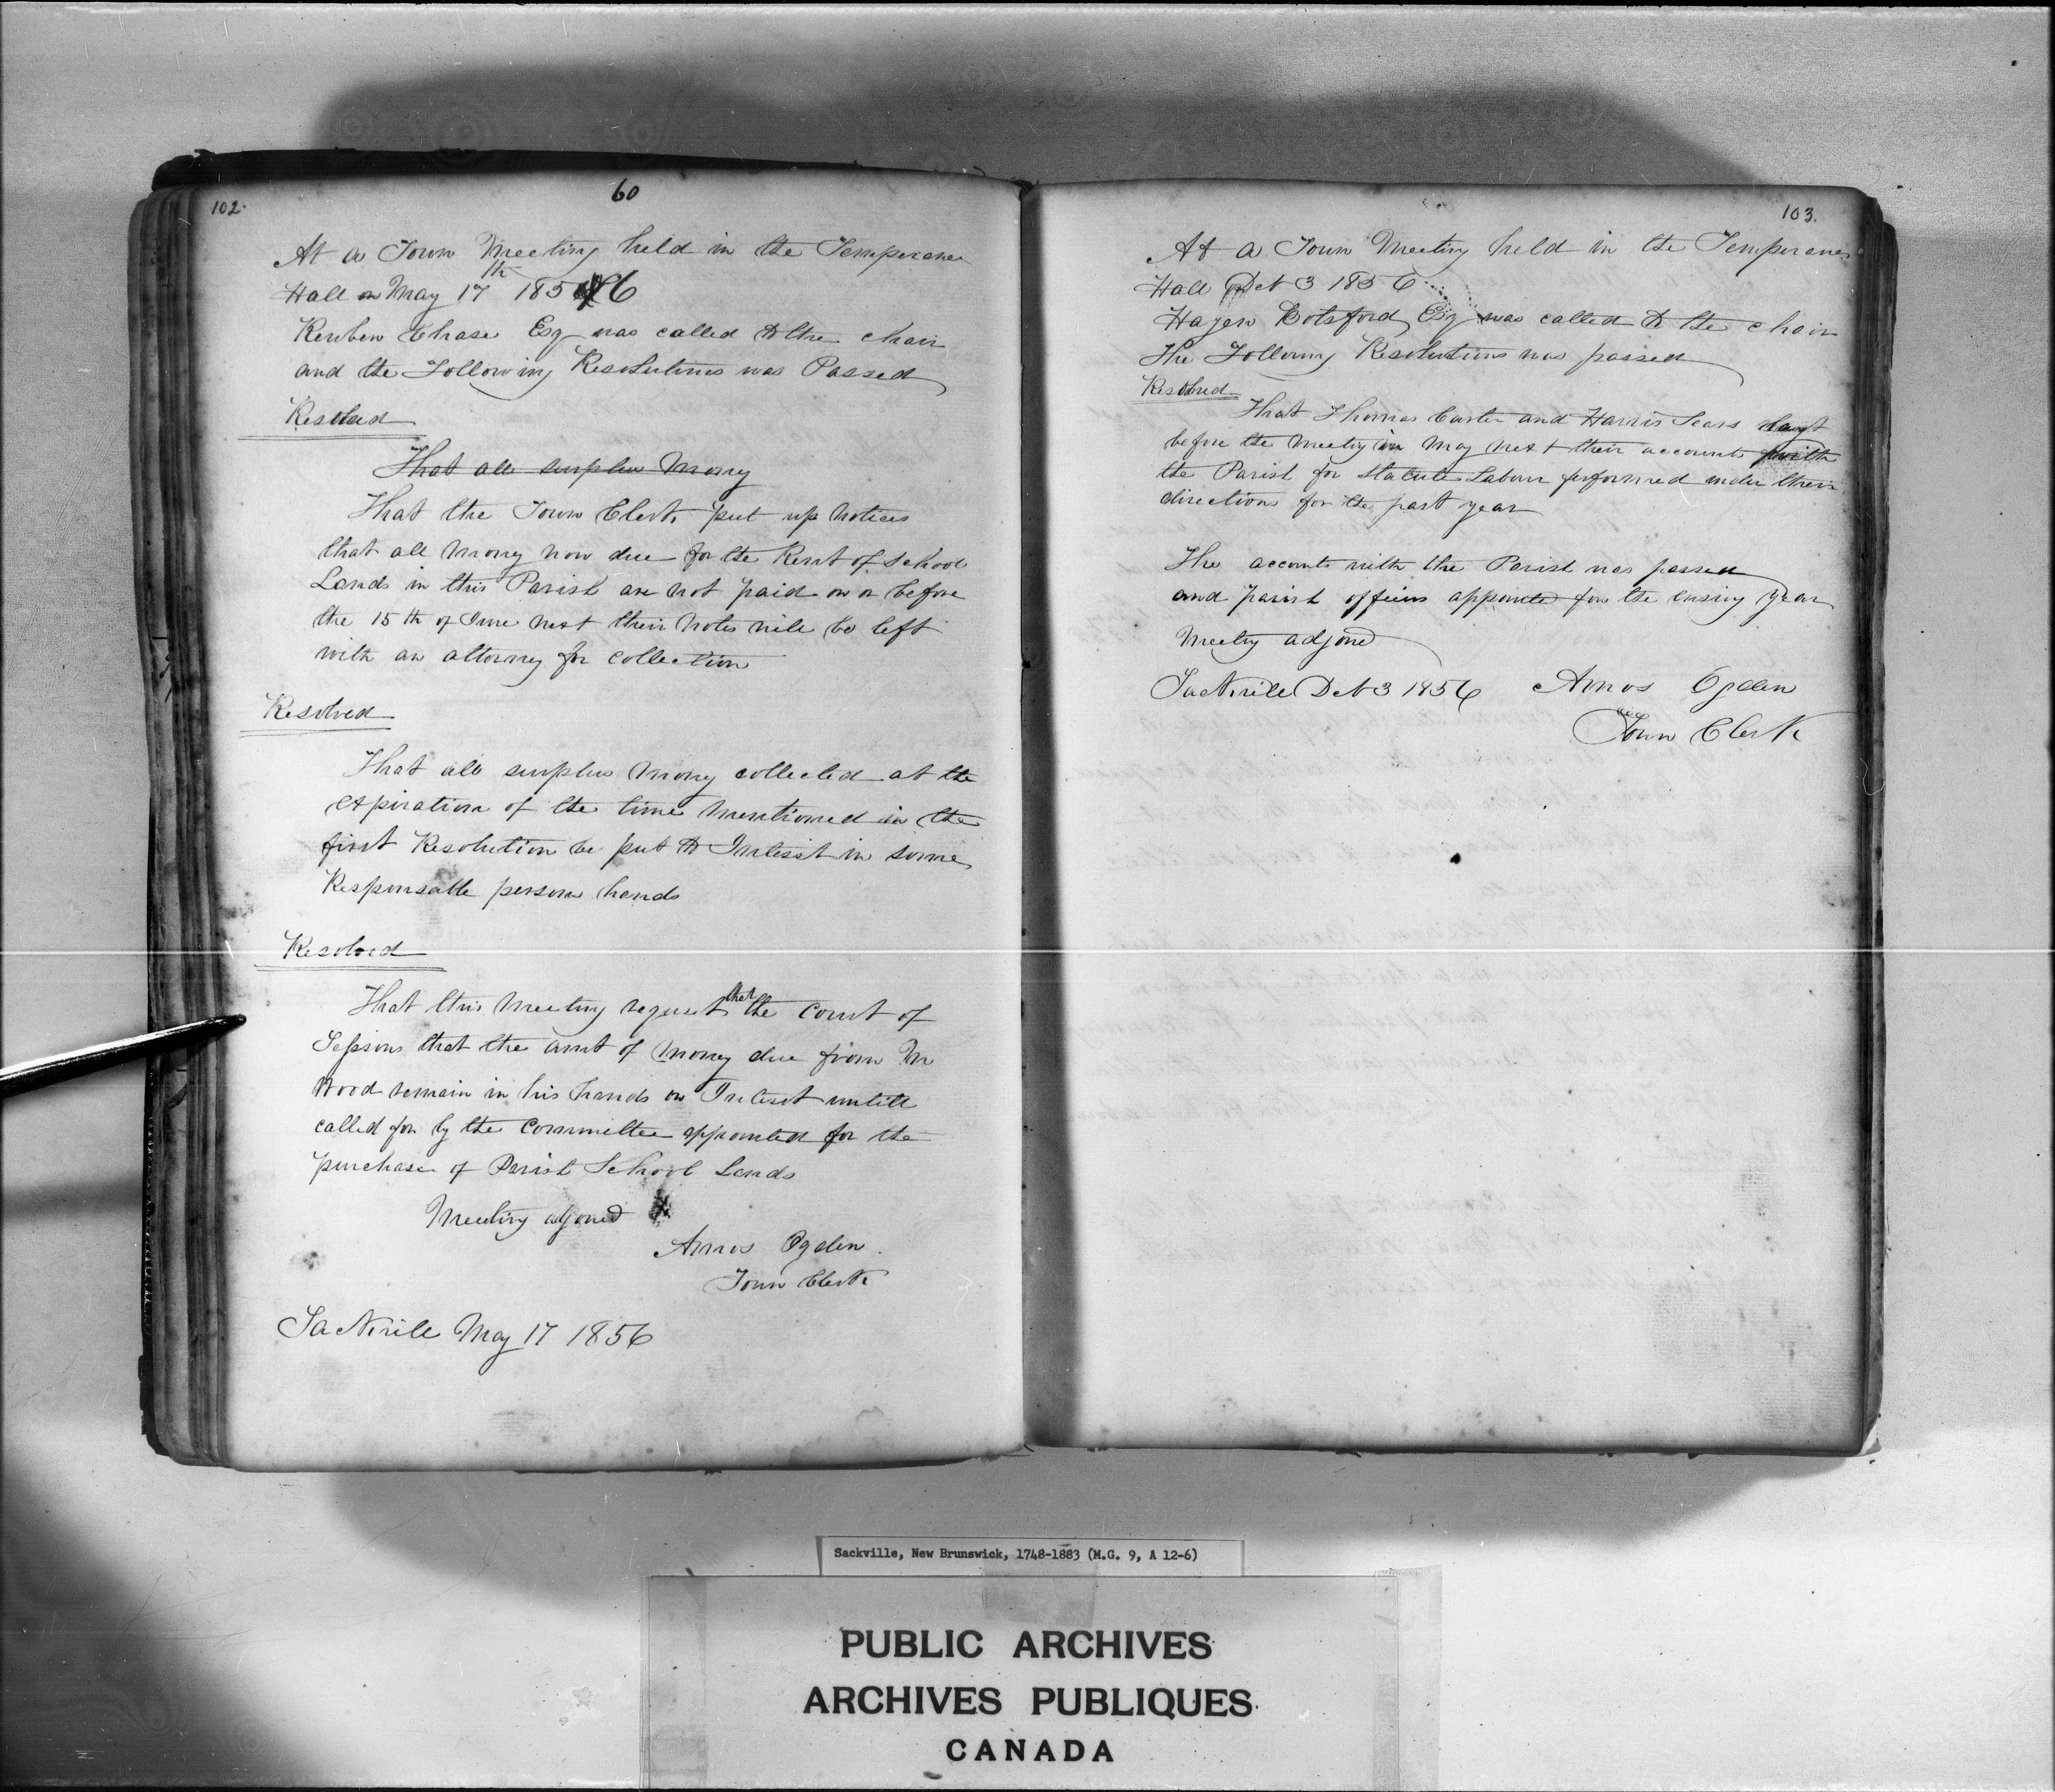 102.
60
At a Town Meeting held in the Temperance
Hall on May 17th 1856
Reuben Chase Esq was called to the chair
and the Following Resolutions was Passed
Resolved
That all surplus Money
That the Town Clerk put up Notices
that all Money now due for the Rent of School
Lands in this Parish are not paid on or before
the 15th of June next their Notes will be left
with an attorney for collection
Resolved
That all surplus Money collected at the
expiration of the time Mentioned in the
first Resolution be put to Interest in some
Responsable persons hands
Resolved
That this Meeting request that the Court of
Sessions that the amt of Money due from Mr
Wood remain in his hands on Interest untill
called for by the Committee appointed for the
purchase of Parish School Lands
Meeting adjoned
Amos Ogden
Town Clerk
Sackville May 17 1856
103.
At a Town Meeting held in the Temperance
Hall Oct 3 1856
Hazen Botsford Esq was called to the chair
The Following Resolutions was passed
Resolved
That Thomas Carter and Harris Sears
before the Meeting in May next their accounts with
the Parish for Statute Labour performed under their
directions for the past year
The accounts with the Parish was passed
and parish officers appointed for the ensuing year
Meeting adjoned
Sackville Oct 3 1856 Amos Ogden
Town Clerk
Sackville, New Brunswick, 1748-1883 (M.G. 9, A 12-6)
PUBLIC ARCHIVES
ARCHIVES PUBLIQUES
CANADA